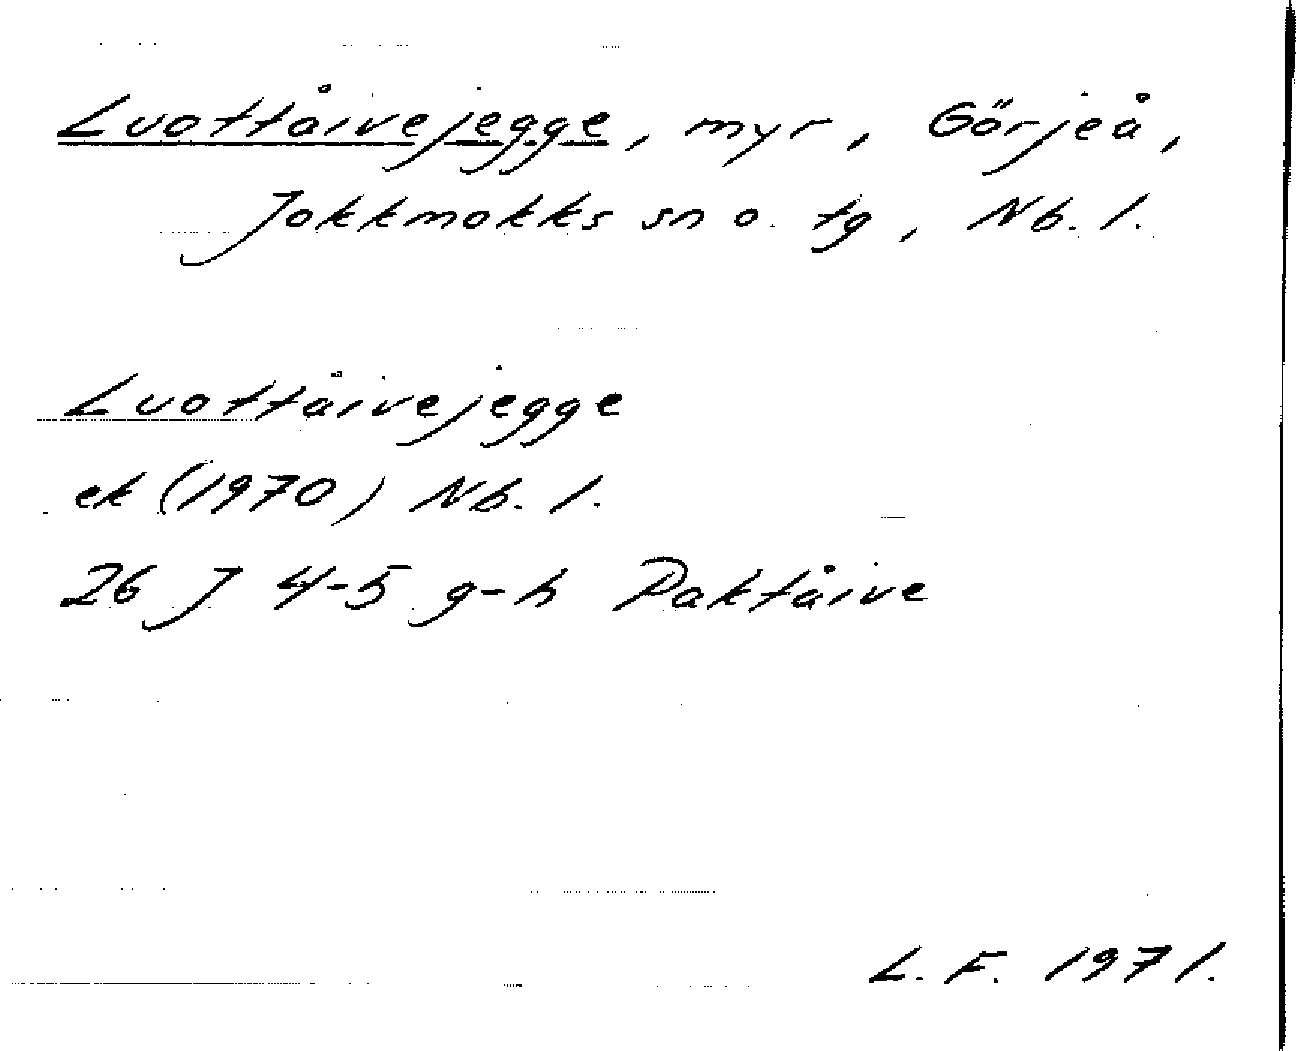 Luottåivejegge, myr, Görjeå,
Jokkmokks sn o. tg, Nb. l.
Luottåivejegge
ek (1970) Nb. l.
26 J 4-5 g-h Paktåive
L. F. 1971.